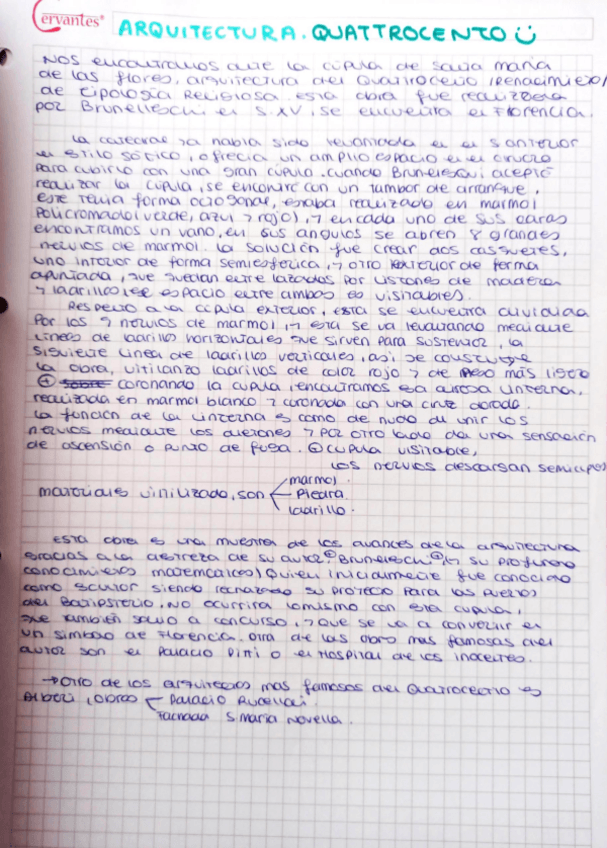 Cervantes®
ARQUITECTURA. QUATTROCENTO
NOS encontramos ante la cúpula de santa maría
de las flores, arquitectura del Quattrocento (renacimiento)
de tipología Religiosa esta obra fue realizada
por Brunelleschi en S.XV, se encuentra en Florencia.
La catedral ya había sido levantada en el S anterior
en estilo gótico, ofrecía un amplio espacio en el crucero
para cubrirlo con una gran cúpula. cuando Brunelleschi aceptó
realizar la cúpula, se encontró con un tambor de arranque,
este tenía forma octogonal, estaba realizado en marmol
policromado (verde, azul y rojo), y en cada uno de sus caras
encontramos un vano, en sus angulos se abren 8 grandes
nervios de marmol. La solución fue crear dos casquetes,
uno interior de forma semiesférica, y otro exterior de forma
apuntada, que quedan entre lazados por listones de madera
y ladrillo, ese espacio entre ambos es visitables.
Respecto a la cúpula exterior, esta se encuentra dividida
Por los 9 nervios de marmol, y esta se va levantando mediante
lineas de ladrillos horizontales que sirven para sustentar, la
siguiente linea de ladrillos verticales, así se construye
la obra, utilizando ladrillos de color rojo y de peso más ligero
coronando la cupula, encontramos esa airosa linterna,
realizada en marmol blanco y coronada con una cruz dorada.
La función de la linterna es como de nudo al unir los
nervios mediante los aletones y por otro lado da una sensación
de ascensión o punto de fuga. cupula visitable,
los nervios descargan
materiales utilizado, son
marmol.
Piedra.
ladrillo.
Esta obra es una muestra de los avances de la arquitectura
gracias a la destreza de su autor Brunelleschi (y su profundo
conocimientos matemáticos) Quien inicialmente fue conocido
como scultor siendo rechazado su proyecto para las puertas
del Baptisterio. No ocurrira lo mismo con esta cupula,
que también salió a concurso, y que se va a convertir en
un simbolo de Florencia. Otra de las obras mas famosas del
autor son el Palacio Pitti o el Hospital de los inocentes.
→ Otro de los arquitectos mas famosos del Quattrocento es
Alberti, obras
Palacio Rucellai.
Fachada S Maria Novella.